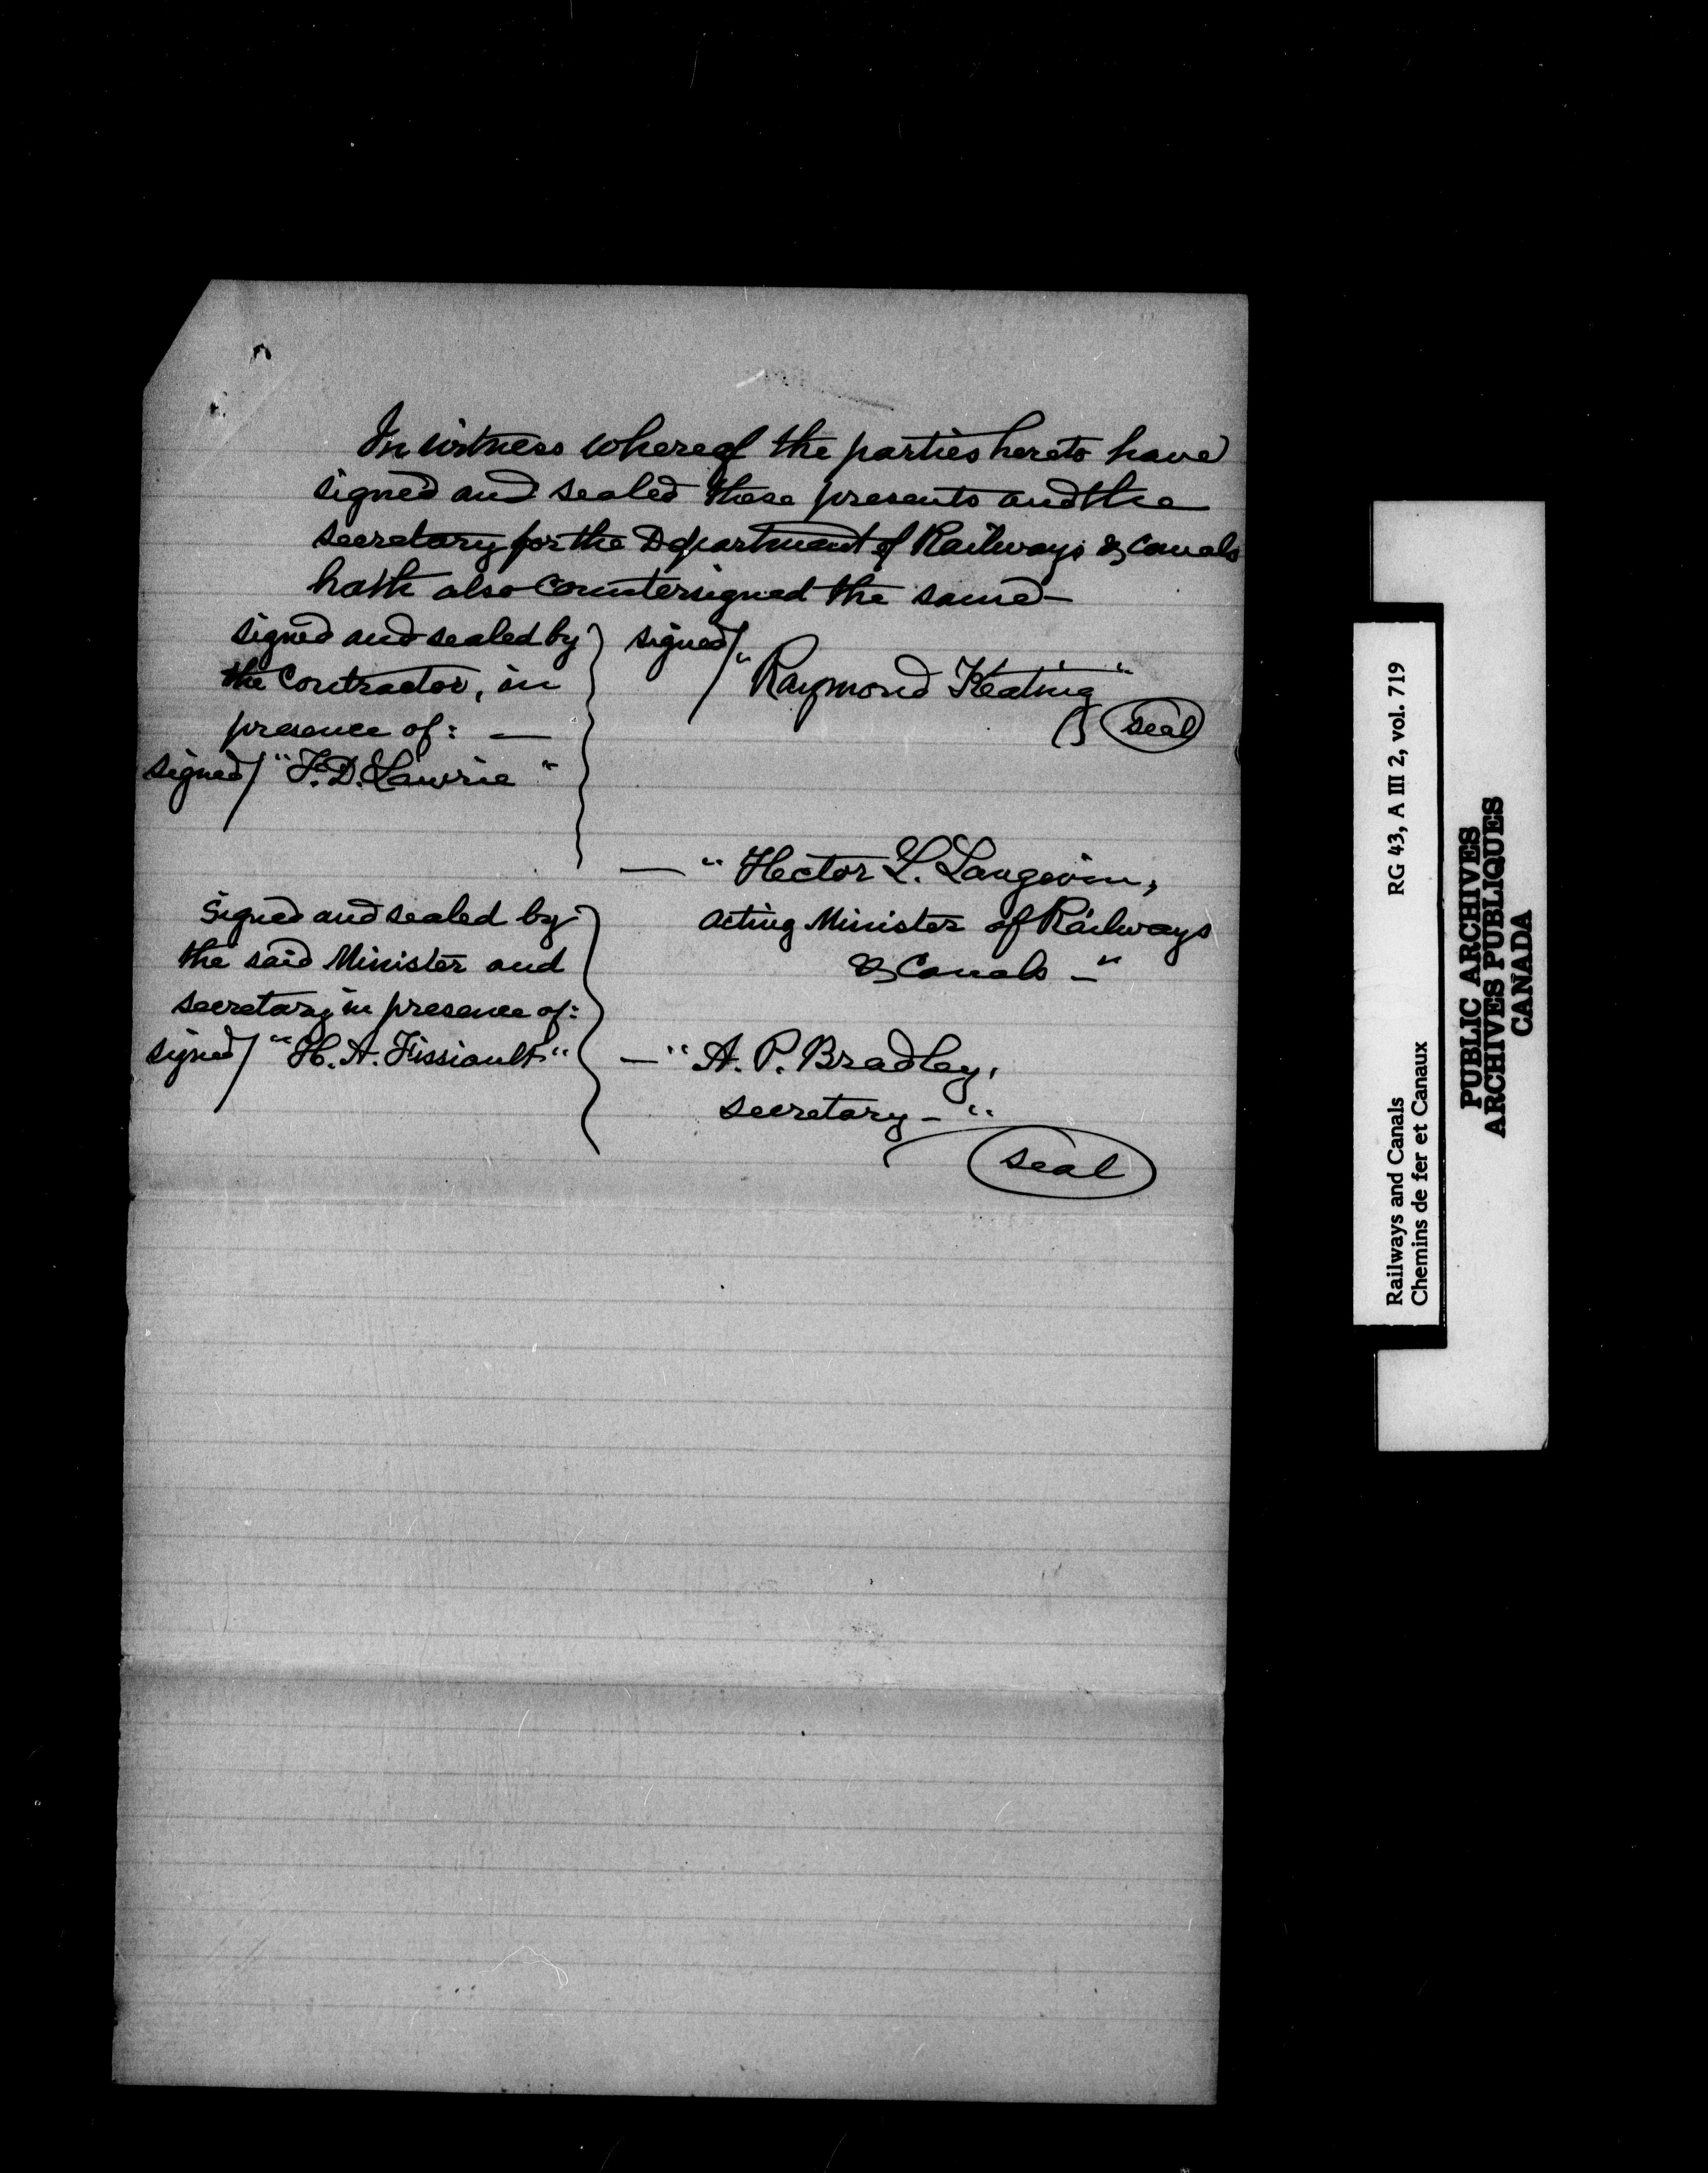 In witness whereof the parties hereto have
signed and sealed these presents and the
secretary for the Department of Railways & Canals
hath also countersigned the same—
signed and sealed by
the Contractor, in
presence of: —
signed/ "F. D. Lawrie"
signed/
"Raymond Keating"
seal
— "Hector L. Langevin,
acting Minister of Railways
& Canals —"
Signed and sealed by
the said Minister and
secretary in presence of:
signed/ "H. A. Fissiault"
— "A. P. Bradley,
secretary — "
seal
Railways and Canals RG 43, A III 2, vol. 719
Chemins de fer et Canaux
PUBLIC ARCHIVES
ARCHIVES PUBLIQUES
CANADA